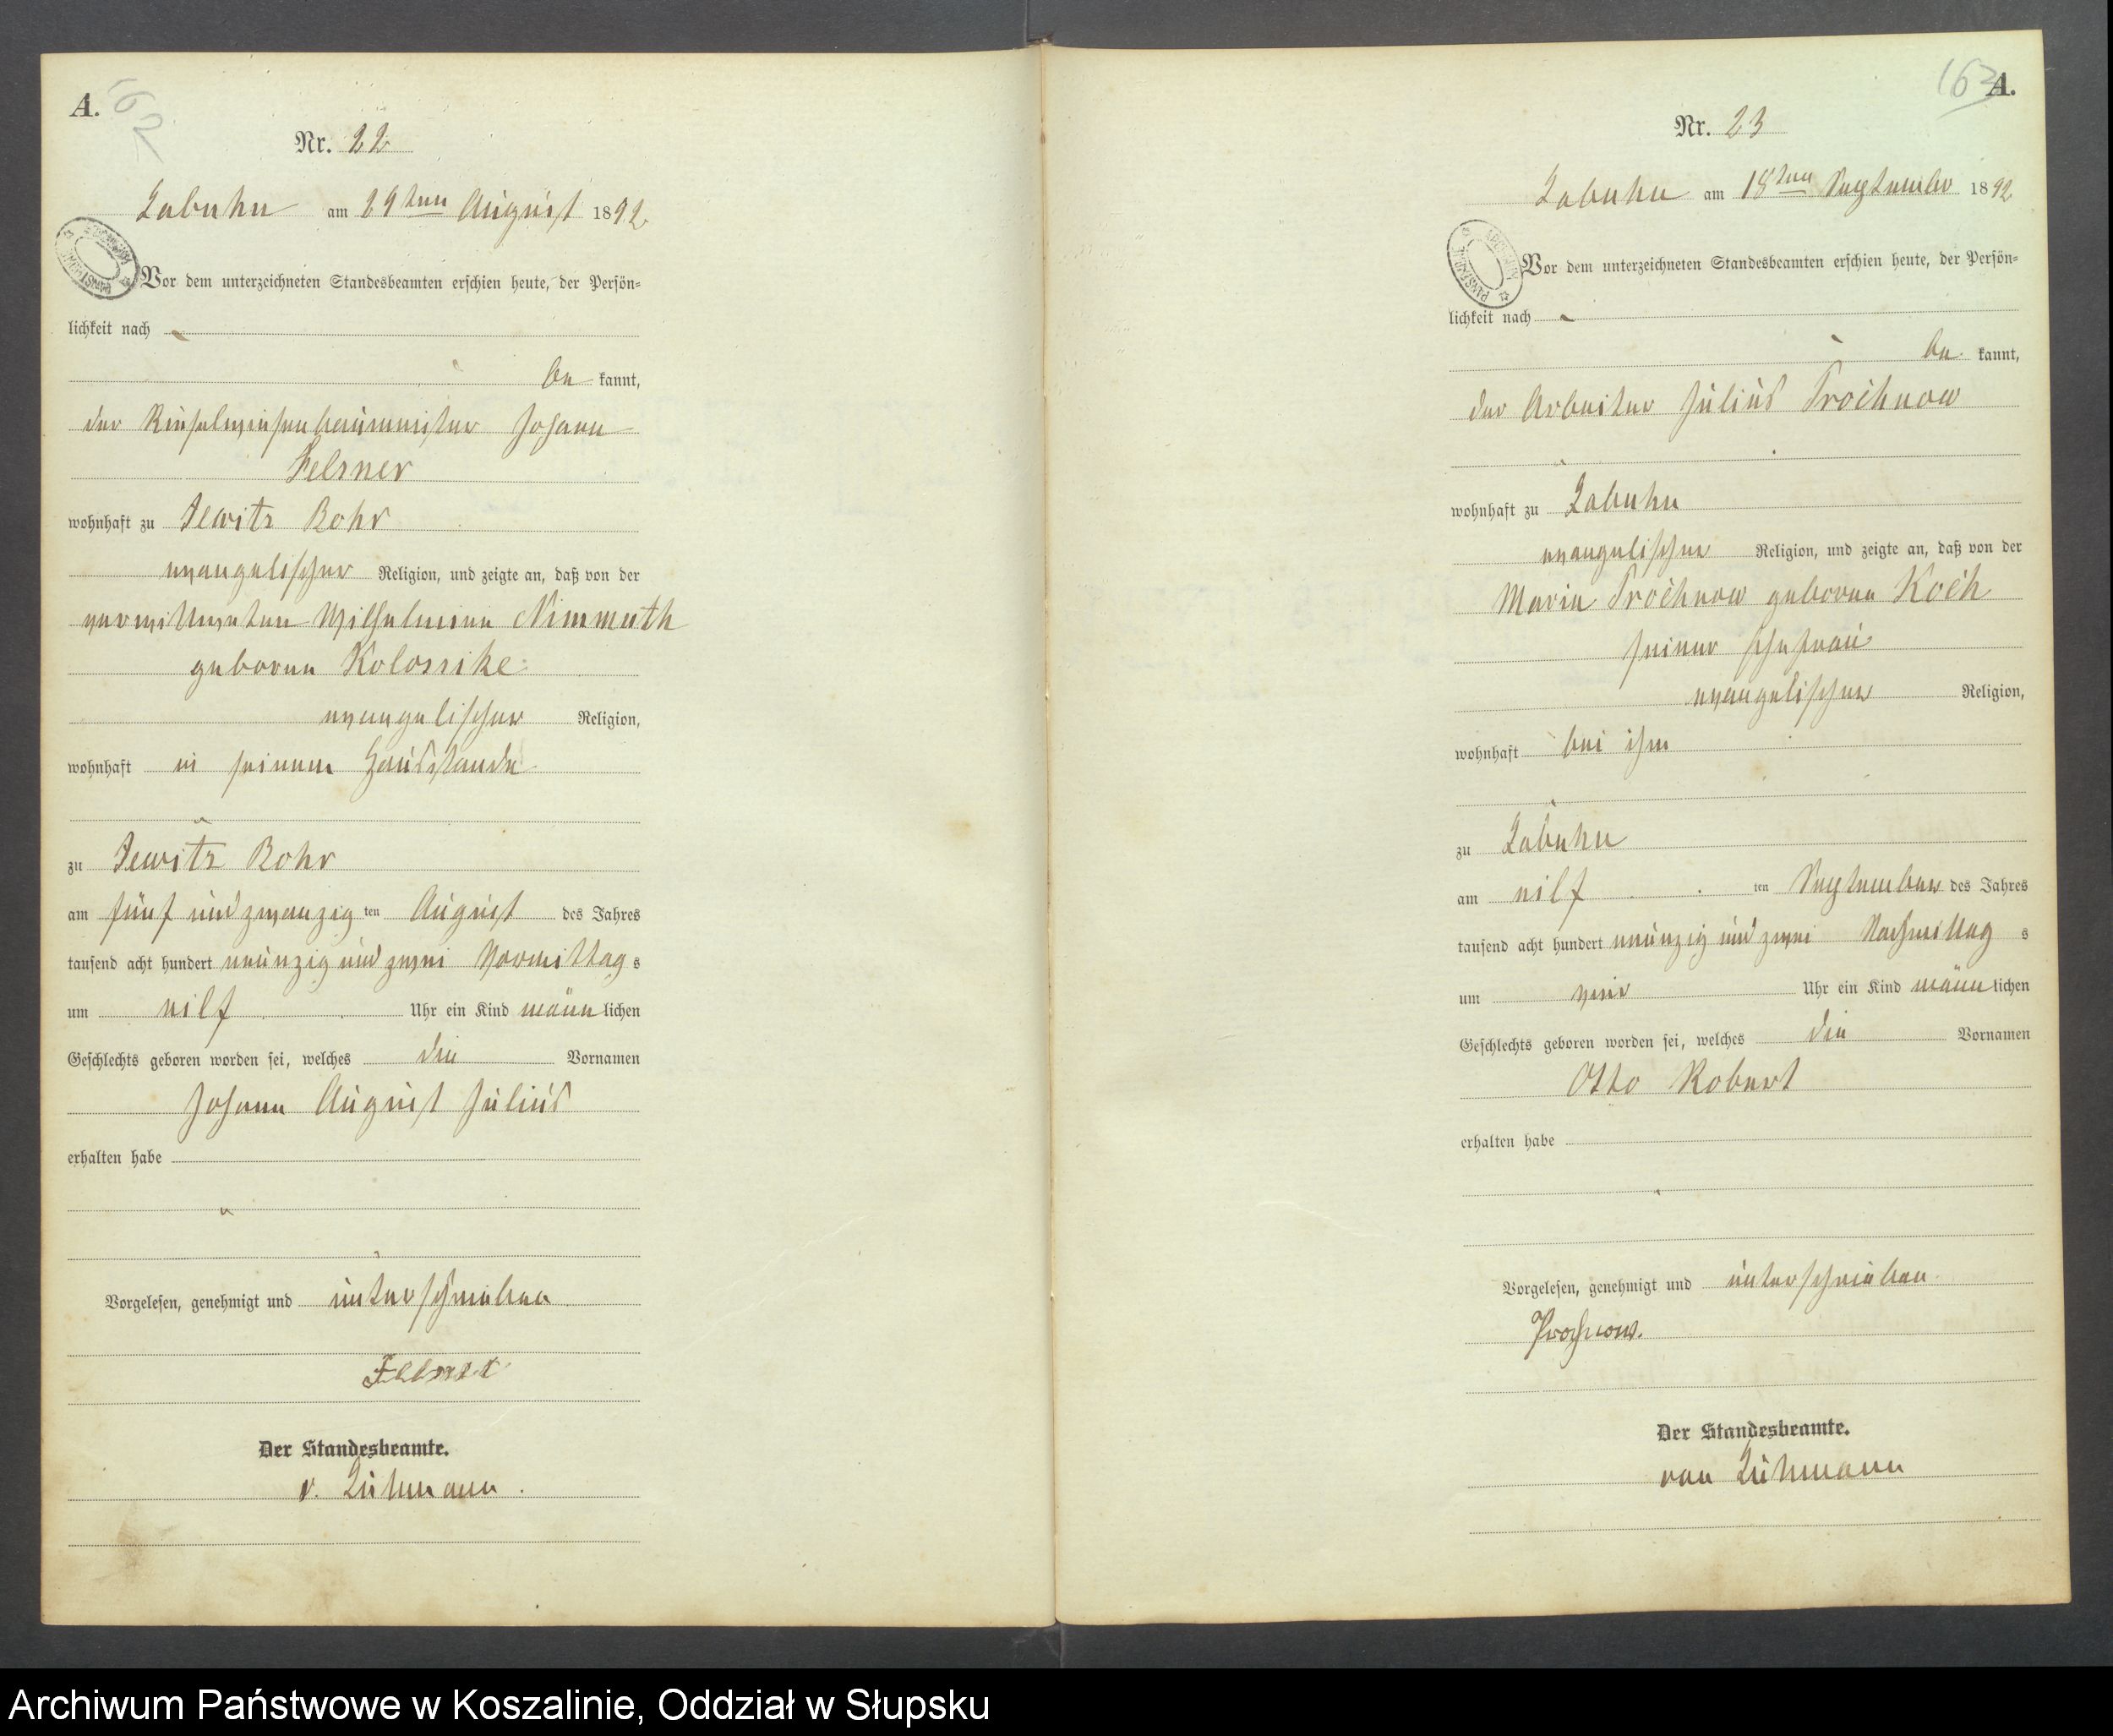 A.
162
Nr. 22
Labuhn am 29ten August 1892
Vor dem unterzeichneten Standesbeamten erschien heute, der Persön-
lichkeit nach
be kannt,
der Rieselwiesenbaumeister Johann
Felsner
wohnhaft zu Jewitz Bohr
evangelischer Religion, und zeigte an, daß von der
verwittweten Wilhelmine Nimmuth
geborene Kolosske
evangelischer Religion,
wohnhaft in seinem Hausstande
zu Jewitz Bohr
am fünf und zwanzig ten August des Jahres
tausend acht hundert neunzig und zwei Vormittag s
um elf Uhr ein Kind männ lichen
Geschlechts geboren worden sei, welches die Vornamen
Johann August Julius
erhalten habe
Vorgelesen, genehmigt und unterschrieben
Felsner
Der Standesbeamte.
v. Lühmann.
163
A.
Nr. 23
Labuhn am 18ten September 1892
Vor dem unterzeichneten Standesbeamten erschien heute, der Persön-
lichkeit nach
be kannt,
der Arbeiter Julius Prochnow
wohnhaft zu Labuhn
evangelischer Religion, und zeigte an, daß von der
Marie Prochnow geborene Koch
seiner Ehefrau
evangelischer Religion,
wohnhaft bei ihm
zu Labuhn
am elf ten September des Jahres
tausend acht hundert neunzig und zwei Nachmittag s
um vier Uhr ein Kind männ lichen
Geschlechts geboren worden sei, welches die Vornamen
Otto Robert
erhalten habe
Vorgelesen, genehmigt und unterschrieben
Prochnow.
Der Standesbeamte.
von Lühmann
Archiwum Państwowe w Koszalinie, Oddział w Słupsku